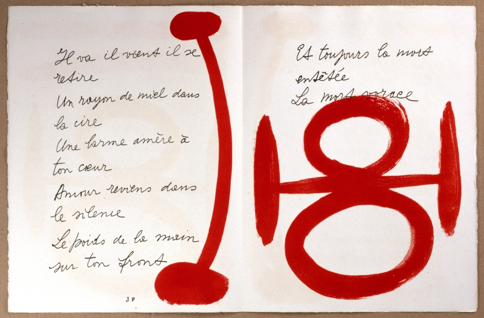 Il va il vient il se
retire
Un rayon de miel dans
la cire
Une larme amère à
ton cœur
Amour reviens dans
le silence
Le poids de la main
sur ton front
38
Et toujours la mort
entêtée
La mort vorace